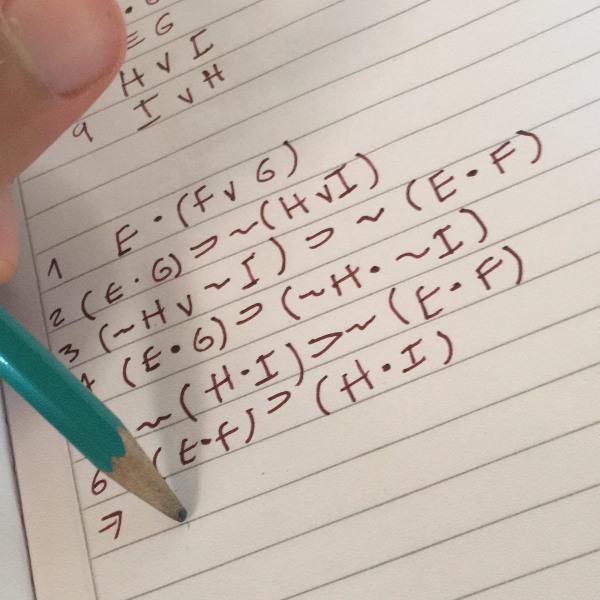 ≡ G
H v I
9 I v H
1 E • (F v G)
2 (E • G) ⊃ ~(H v I)
3 (~H v ~I) ⊃ ~(E • F)
4 (E • G) ⊃ (~H • ~I)
~(H • I) ⊃ ~(E • F)
6 (E • F) ⊃ (H • I)
7